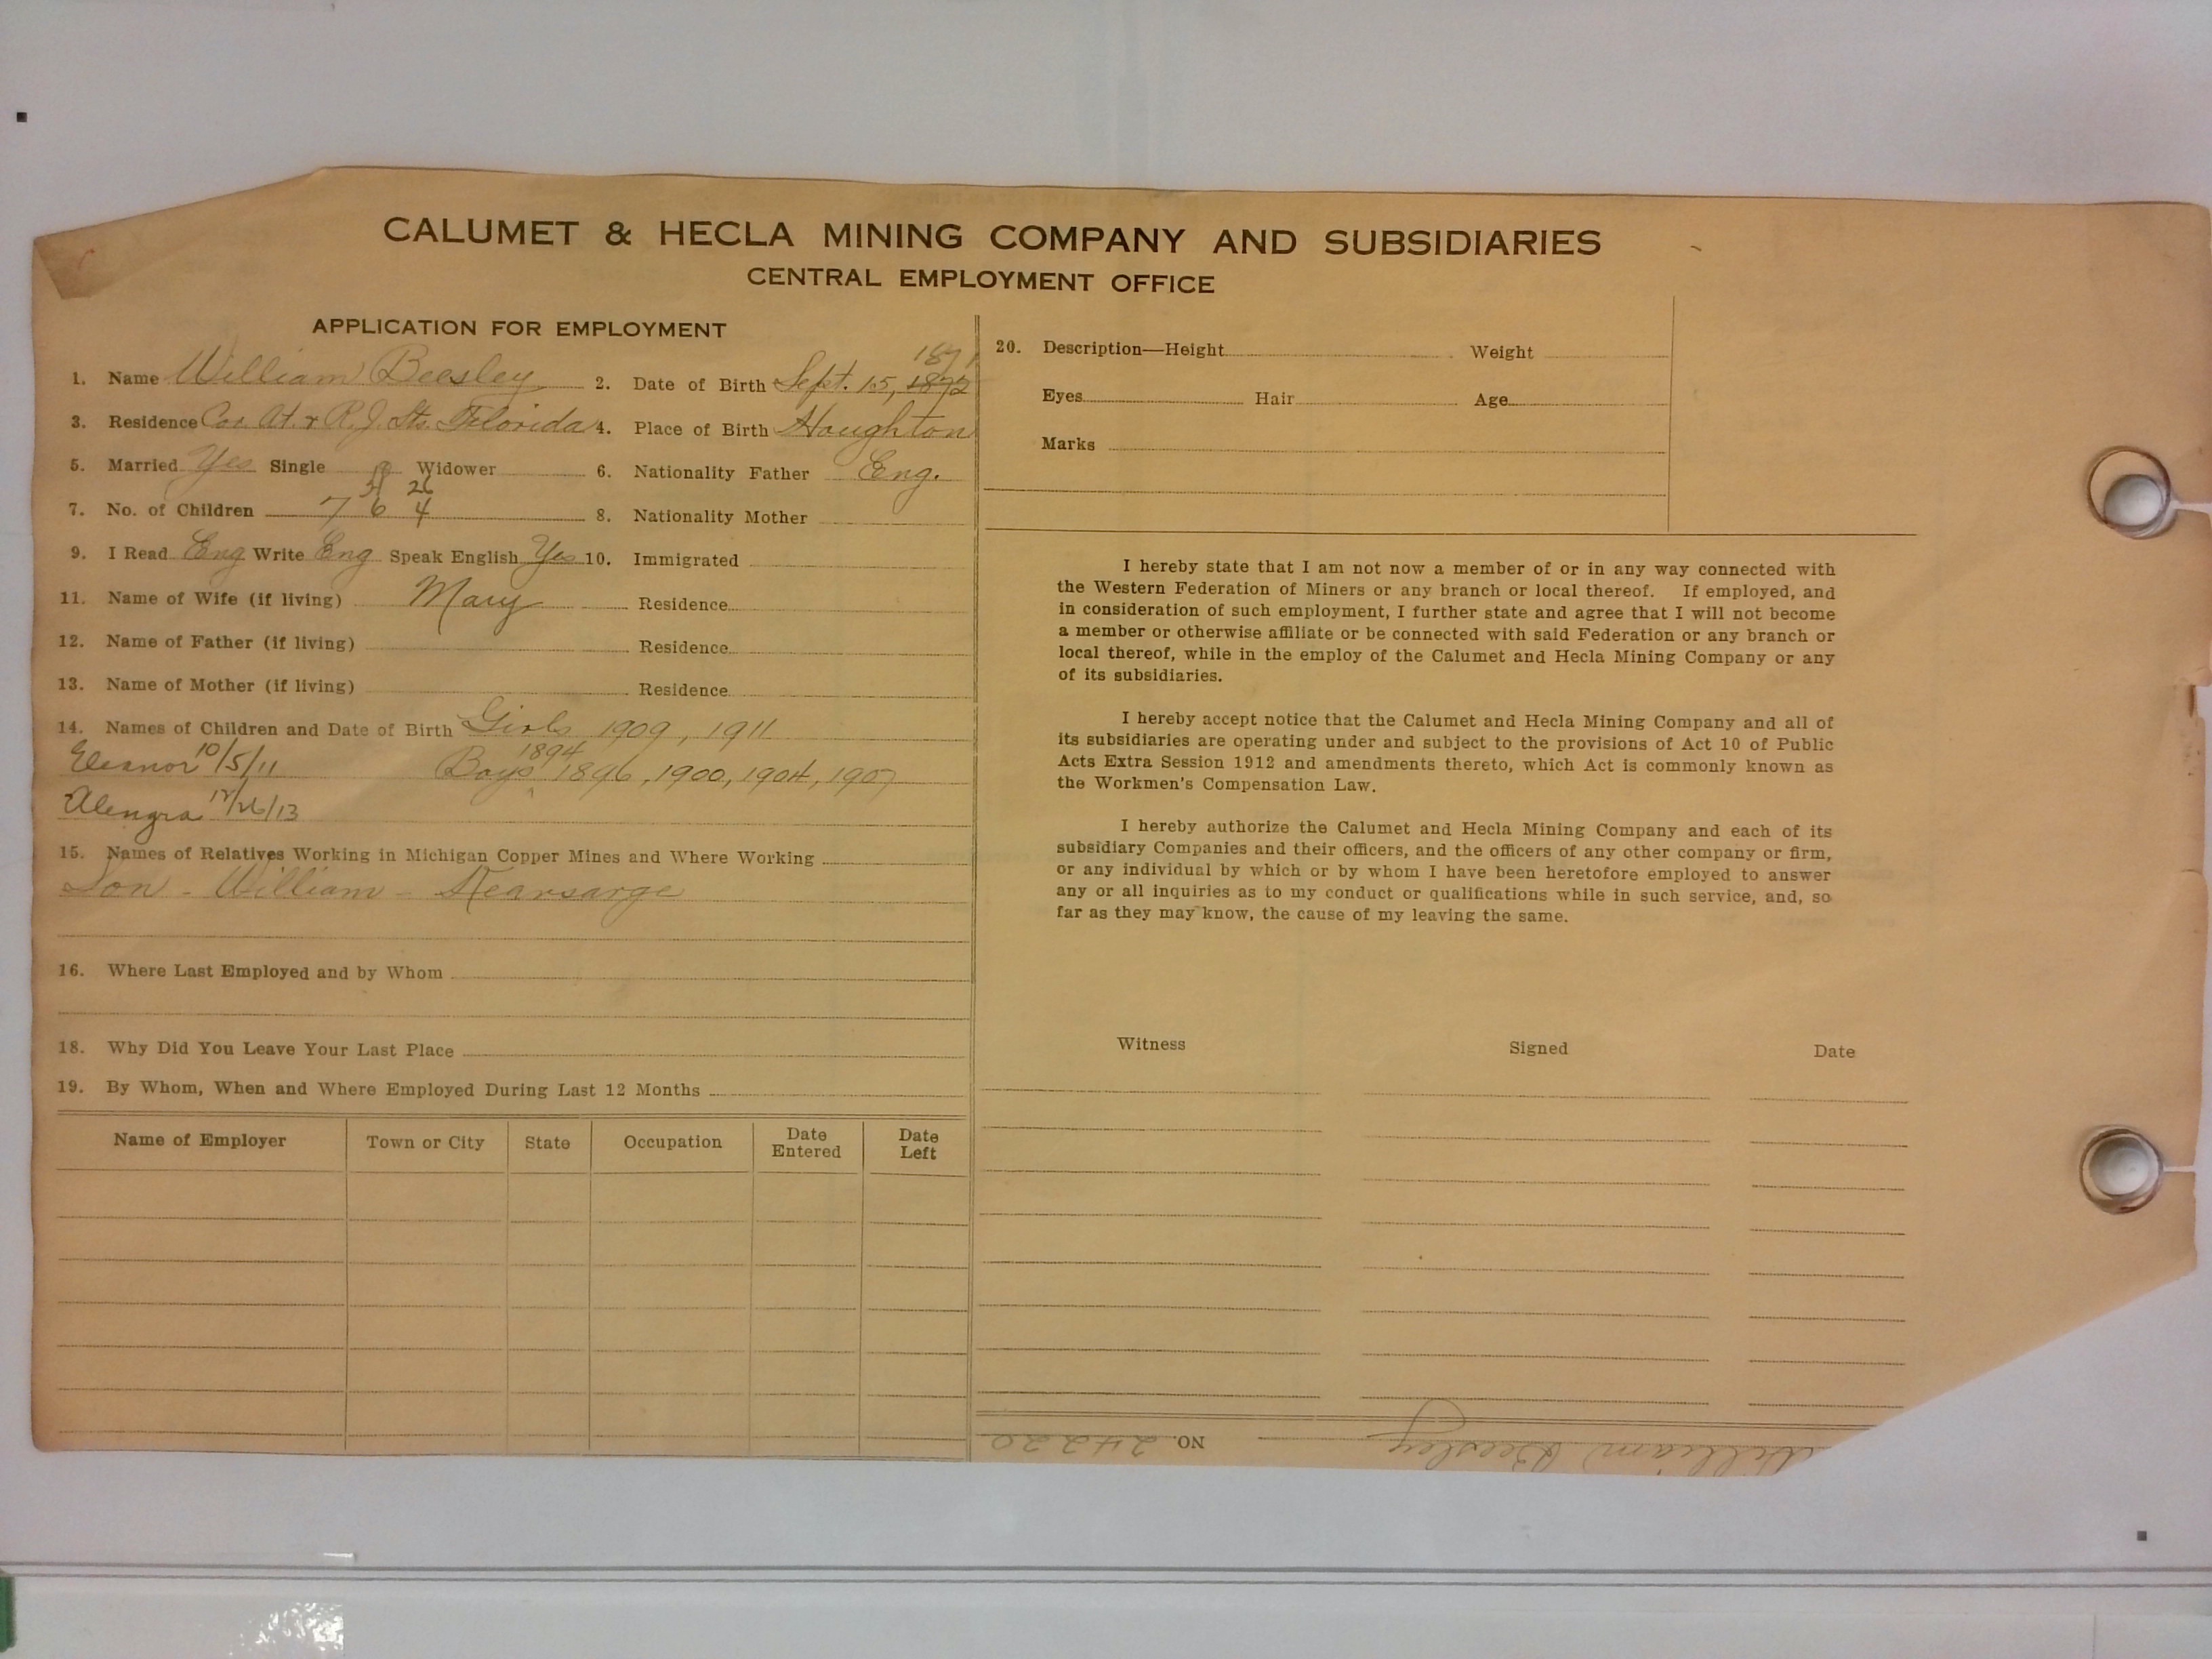 CALUMET & HECLA MINING COMPANY AND SUBSIDIARIES
CENTRAL EMPLOYMENT OFFICE
APPLICATION FOR EMPLOYMENT
1. Name William Beesley 2. Date of Birth Sept. 15, 1872 1871
3. Residence Cor. At. & R.J. Sts. Florida 4. Place of Birth Houghton
5. Married Yes Single Widower 6. Nationality Father Eng.
7. No. of Children 7 6 4 8. Nationality Mother
9. I Read Eng Write Eng Speak English Yes 10. Immigrated
11. Name of Wife (if living) Mary Residence
12. Name of Father (if living) Residence
13. Name of Mother (if living) Residence
14. Names of Children and Date of Birth Girls 1909, 1911
Eleanor 10/5/11 Boys 1894 1896, 1900, 1904, 1907
12/26/13
15. Names of Relatives Working in Michigan Copper Mines and Where Working
Son - William - Kearsarge
16. Where Last Employed and by Whom
18. Why Did You Leave Your Last Place
19. By Whom, When and Where Employed During Last 12 Months
Name of Employer Town or City State Occupation Date Entered Date Left
20. Description—Height Weight
Eyes Hair Age
Marks
I hereby state that I am not now a member of or in any way connected with
the Western Federation of Miners or any branch or local thereof. If employed, and
in consideration of such employment, I further state and agree that I will not become
a member or otherwise affiliate or be connected with said Federation or any branch or
local thereof, while in the employ of the Calumet and Hecla Mining Company or any
of its subsidiaries.
I hereby accept notice that the Calumet and Hecla Mining Company and all of
its subsidiaries are operating under and subject to the provisions of Act 10 of Public
Acts Extra Session 1912 and amendments thereto, which Act is commonly known as
the Workmen's Compensation Law.
I hereby authorize the Calumet and Hecla Mining Company and each of its
subsidiary Companies and their officers, and the officers of any other company or firm,
or any individual by which or by whom I have been heretofore employed to answer
any or all inquiries as to my conduct or qualifications while in such service, and, so
far as they may know, the cause of my leaving the same.
Witness Signed Date
William Beesley NO. 24220